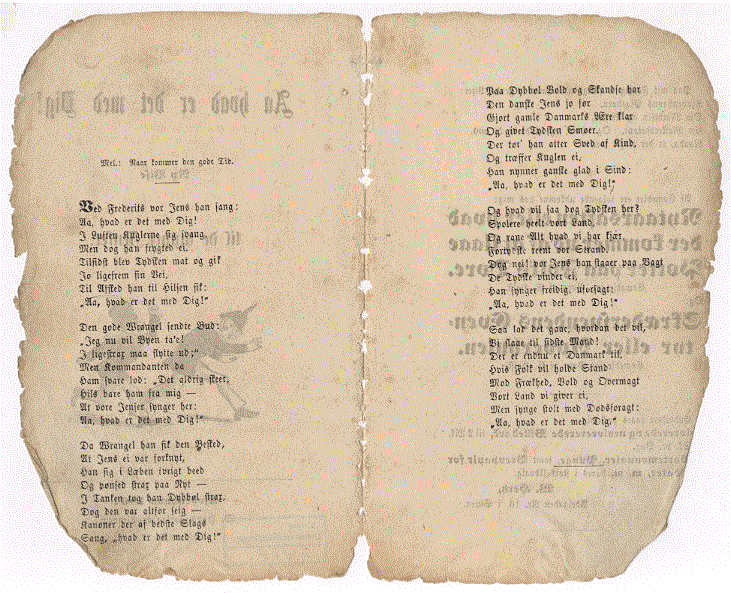 Aa hvad er det med Dig!
Mel.: Naar kommer den gode Tid.
Ved Frederiks vor Jens han sang:
Aa, hvad er det med Dig!
I Luften Kuglerne sig svang,
Men dog han frygted ei.
Tilsidst blev Tydsken mat og gik
Jo ligefrem sin Vei,
Til Afsked han til Hilsen fik:
„Aa, hvad er det med Dig!"
Den gode Wrangel sendte Bud:
„Jeg nu vil Byen ta'e!
I ligestrax maa flytte ud;"
Men Kommandanten da
Ham svare lod: „Det aldrig skeer,
Hils bare ham fra mig —
At vore Jenser synger her:
Aa, hvad er det med Dig!"
Da Wrangel han fik den Besked,
At Jens ei var forknyt,
Han sig i Læben ivrigt beed
Og pønsed strax paa Nyt —
I Tanken tog han Dybbøl strax,
Dog den var altfor seig —
Kanoner der af bedste Slags
Sang, „hvad er det med Dig!"
Paa Dybbøl Vold og Skandse har
Den danske Jens jo før
Gjort gamle Danmarks Ære klar
Og givet Tydsken Smør.
Der tør' han atter Sved af Kind,
Og træffer Kuglen ei,
Han nynner ganske glad i Sind:
„Aa, hvad er det med Dig!"
Og hvad vil saa dog Tydsken her?
Spolere heelt vort Land
Og rane Alt hvad vi har kjær,
Fortydske rent vor Strand.
Dog nei! vor Jens han staaer paa Vagt
De Tydske vinder ei,
Han synger freidig, uforsagt:
„Aa, hvad er det med Dig!"
Saa lad det gaae, hvordan det vil,
Vi slaae til sidste Mand!
Der er endnu et Danmark til,
Hvis Folk vil holde Stand
Mod Frækhed, Vold og Overmagt
Vort Land vi giver ei,
Men synge stolt med Dødsforagt:
„Aa, hvad er det med Dig."